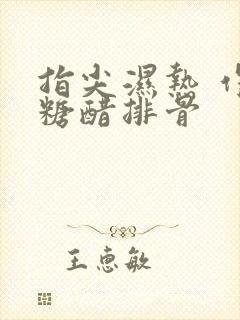 指尖濕熱
糖醋排骨
王惠敏